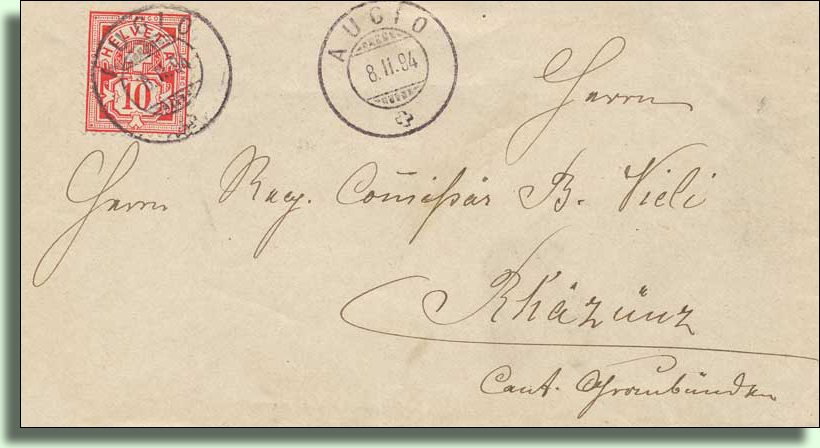 HELVETIA
10
AUCIO
8.II.94
Herrn
Herrn Reg. Com̅issär B. Vieli
Rhäzünz
Cant. Graubünden